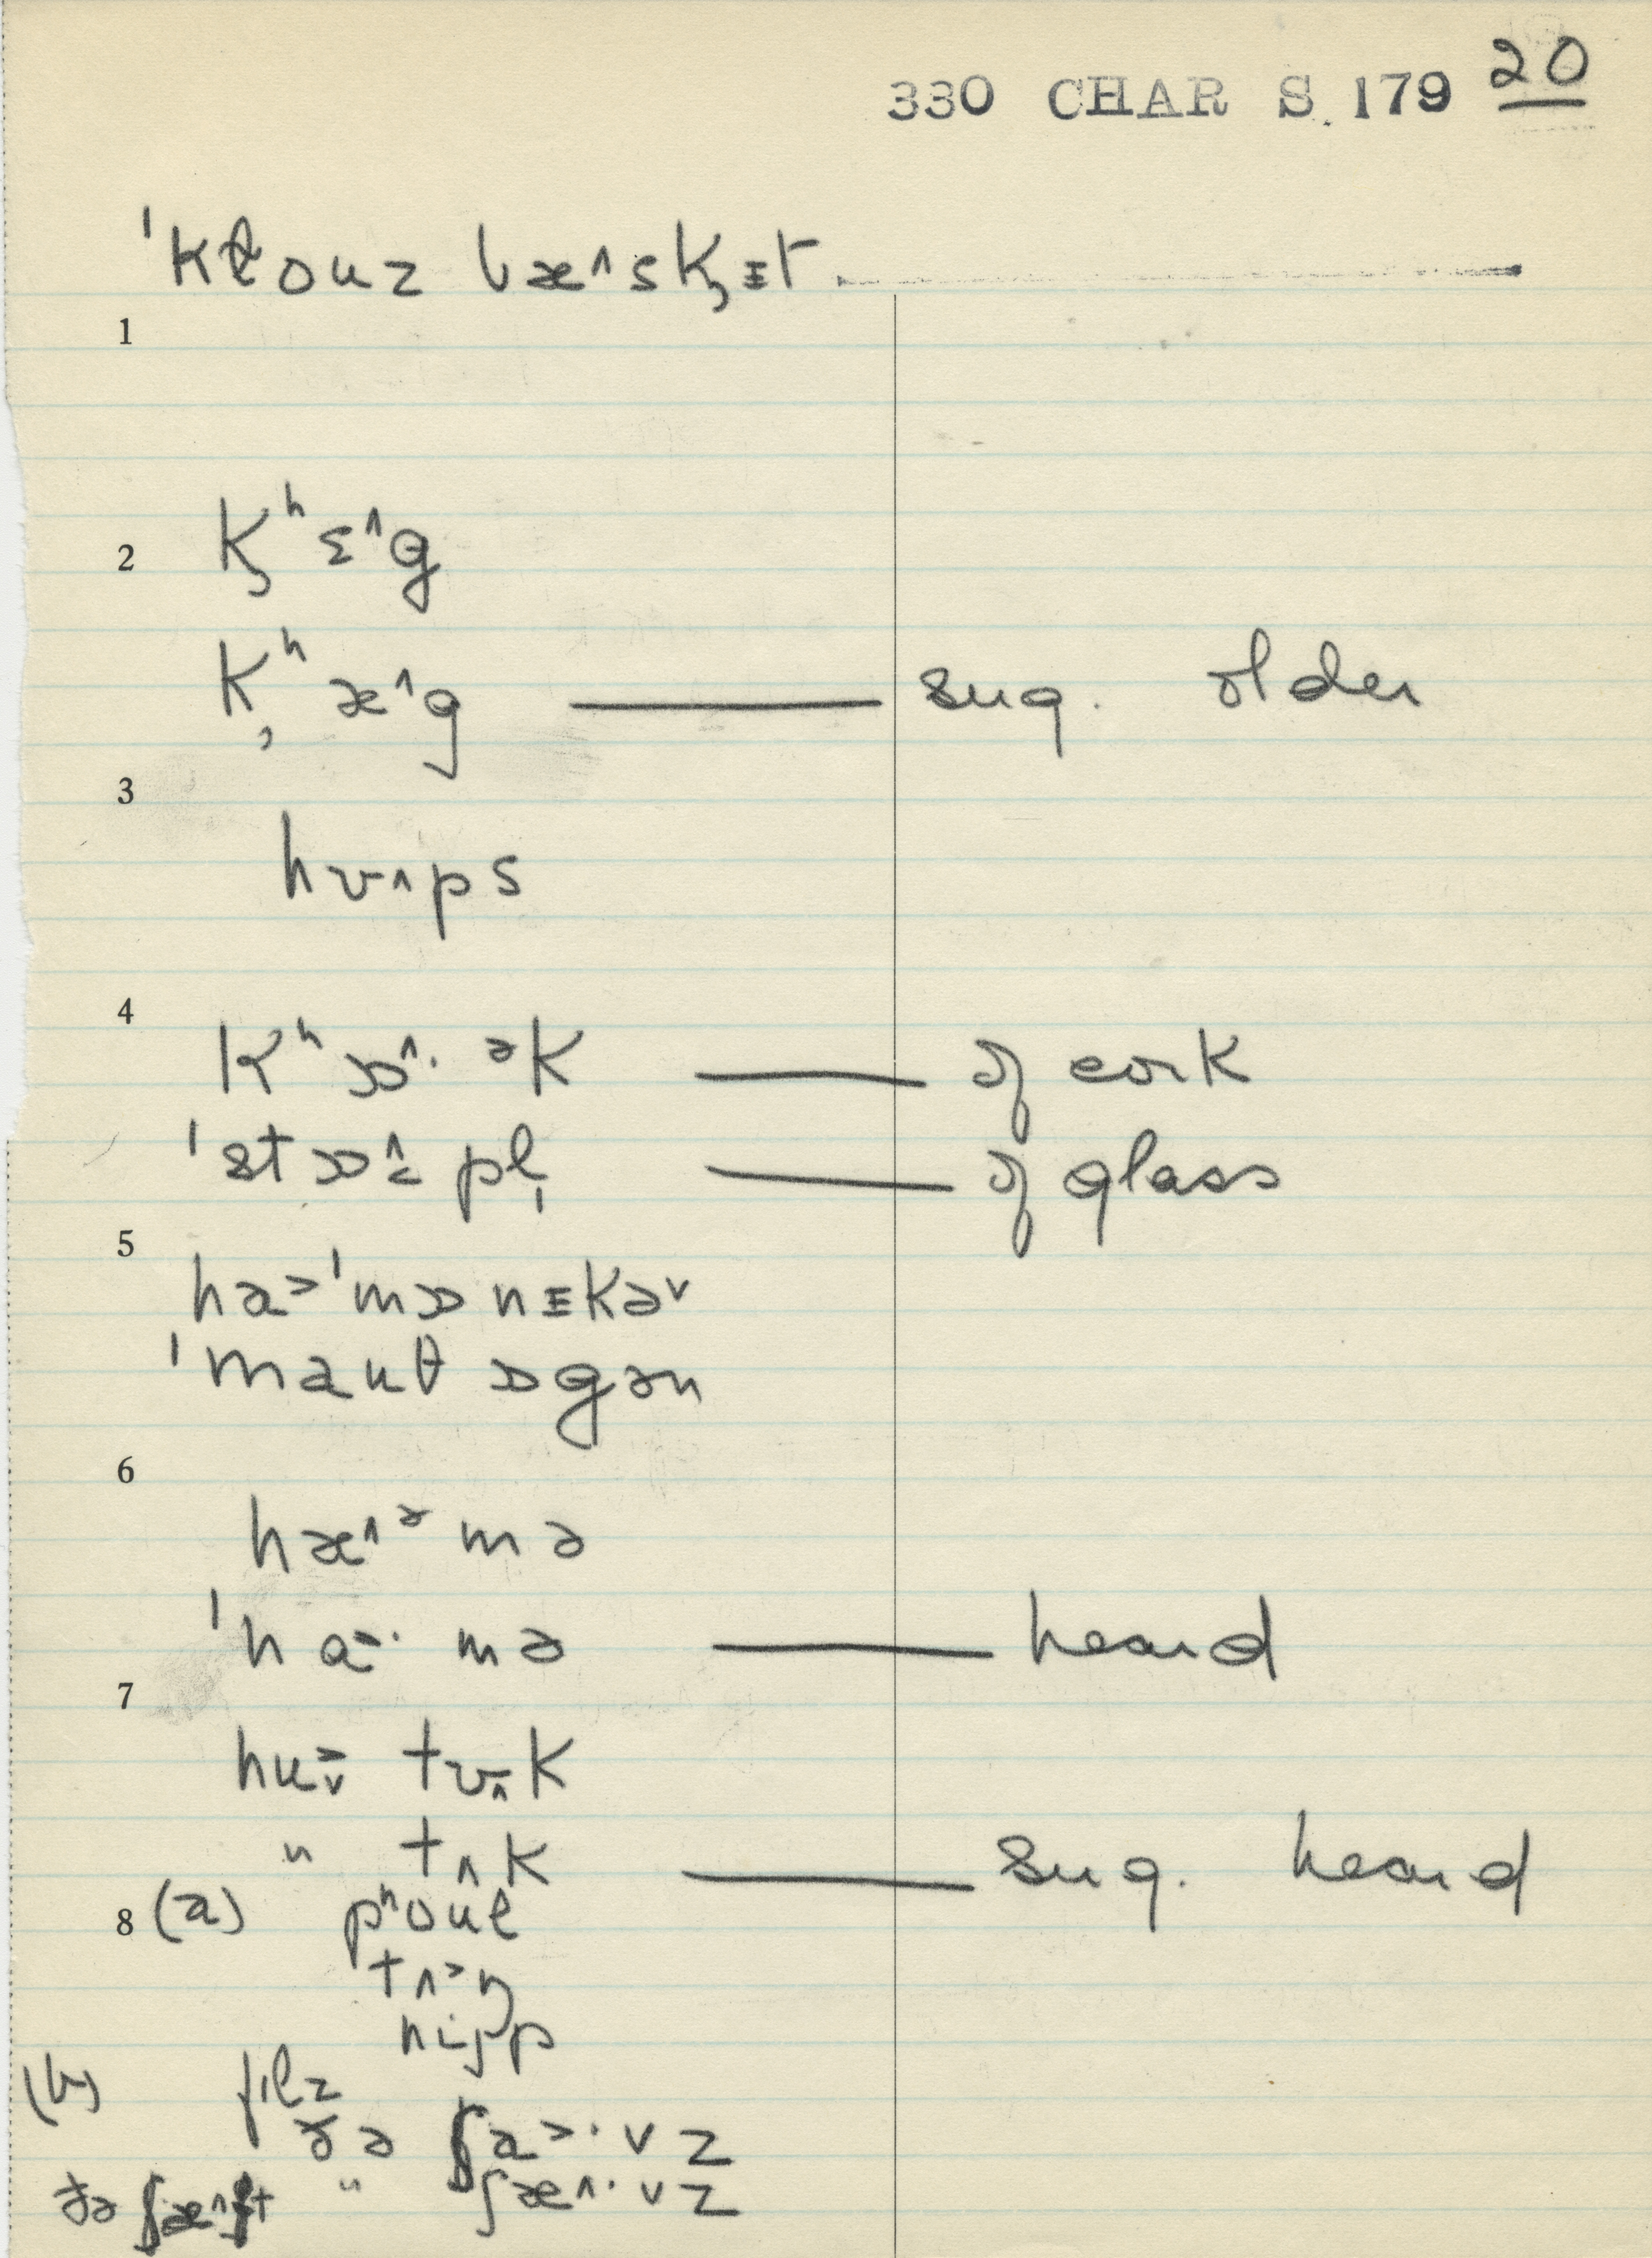 330 CHAR S. 179 20
ˈkɫouz bæ^sk̡ɪt
1
2 k̡ʰɛ^g
k̡ʰæ^g — sug. older
3
hʊ^ps
4
kʰɒ^· ᵊk — of cork
ˈstɒ^ pl̩ — of glass
5
ha>ˈmɒnɪkə˅
ˈmauθ ɒgən
6
hæ^ᵊmə
ˈha>· mə — heard
7
hu tʊ^k
" tʌk — sug. heard
8 (a) pʰoul
tʌ>ŋ
nijp
(b) filz
ðə ʃa>·vz
ðə ʃæ^ft " ʃæ^·vz